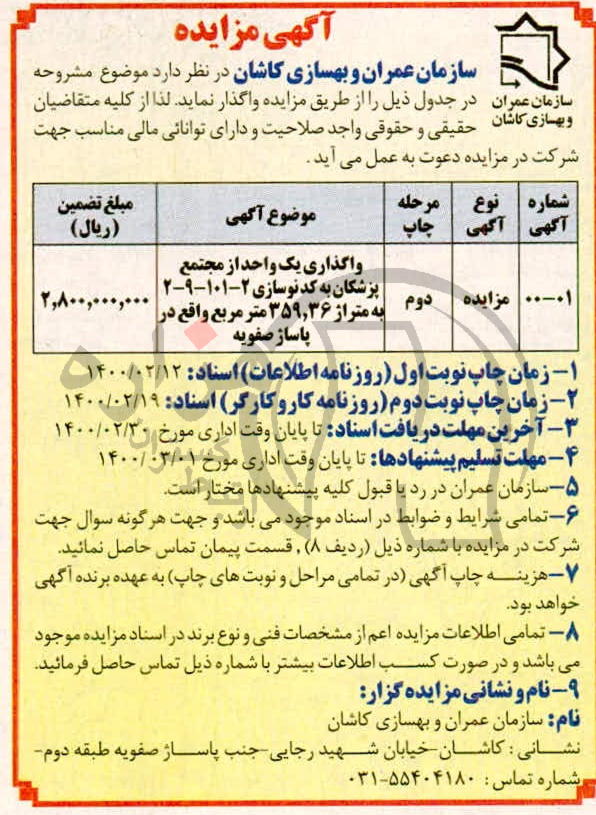 آگهی مزایده
سازمان عمران و بهسازی کاشان در نظر دارد موضوع مشروحه
در جدول ذیل را از طریق مزایده واگذار نماید. لذا از کلیه متقاضیان
حقیقی و حقوقی واجد صلاحیت و دارای توانائی مالی مناسب جهت
شرکت در مزایده دعوت به عمل می آید.
سازمان عمران
و بهسازی کاشان
شماره آگهی
نوع آگهی
مرحله چاپ
موضوع آگهی
مبلغ تضمین (ریال)
۰۰-۰۱
مزایده
دوم
واگذاری یک واحد از مجتمع
پزشکان به کد نوسازی ۲-۱۰۱-۹-۲
به متراژ ۳۵۹,۳۶ متر مربع واقع در
پاساژ صفویه
۲,۸۰۰,۰۰۰,۰۰۰
۱- زمان چاپ نوبت اول (روزنامه اطلاعات) اسناد: ۱۴۰۰/۰۲/۱۲
۲- زمان چاپ نوبت دوم (روزنامه کار و کارگر) اسناد: ۱۴۰۰/۰۲/۱۹
۳- آخرین مهلت دریافت اسناد: تا پایان وقت اداری مورخ ۱۴۰۰/۰۲/۳۰
۴- مهلت تسلیم پیشنهادها: تا پایان وقت اداری مورخ ۱۴۰۰/۰۳/۰۱
۵- سازمان عمران در رد یا قبول کلیه پیشنهادها مختار است.
۶- تمامی شرایط و ضوابط در اسناد موجود می باشد و جهت هرگونه سوال جهت
شرکت در مزایده با شماره ذیل (ردیف ۸) , قسمت پیمان تماس حاصل نمائید.
۷- هزینه چاپ آگهی (در تمامی مراحل و نوبت های چاپ) به عهده برنده آگهی
خواهد بود.
۸- تمامی اطلاعات مزایده اعم از مشخصات فنی و نوع برند در اسناد مزایده موجود
می باشد و در صورت کسب اطلاعات بیشتر با شماره ذیل تماس حاصل فرمائید.
۹- نام و نشانی مزایده گزار:
نام: سازمان عمران و بهسازی کاشان
نشانی: کاشان-خیابان شهید رجایی-جنب پاساژ صفویه طبقه دوم-
شماره تماس: ۰۳۱-۵۵۴۰۴۱۸۰